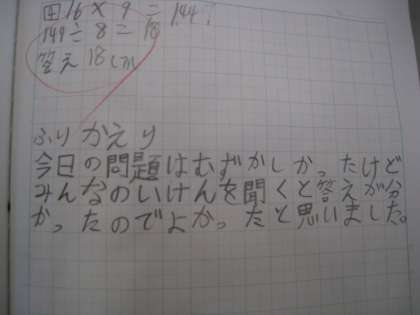 16×9=144
144÷8=18
答え 18
ふりかえり
今日の問題はむずかしかったけど
みんなのいけんを聞くと答えが分
かったのでよかったと思いました。